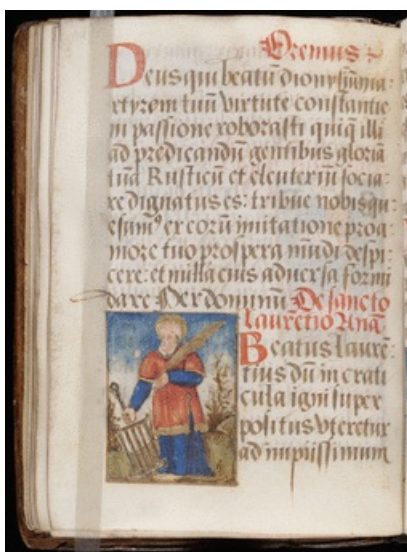 Oremus
Deus qui beatū dionysiū ma-
rtyrem tuū virtute constantie
in passione roborasti quiq illi
ad predicandū gentibus gloriā
tuā Rusticū et eleuteriū socia-
re dignatus es: tribue nobis qu-
esum⁹ ex eorū imitatione pro a-
more tuo prospera mūdi despi-
cere: et nulla eius aduersa formi
dare Per dominū De sancto
laurētio Anā
Beatus laurē-
tius dū in crati
cula igni super
positus vreretur
ad impiissimum